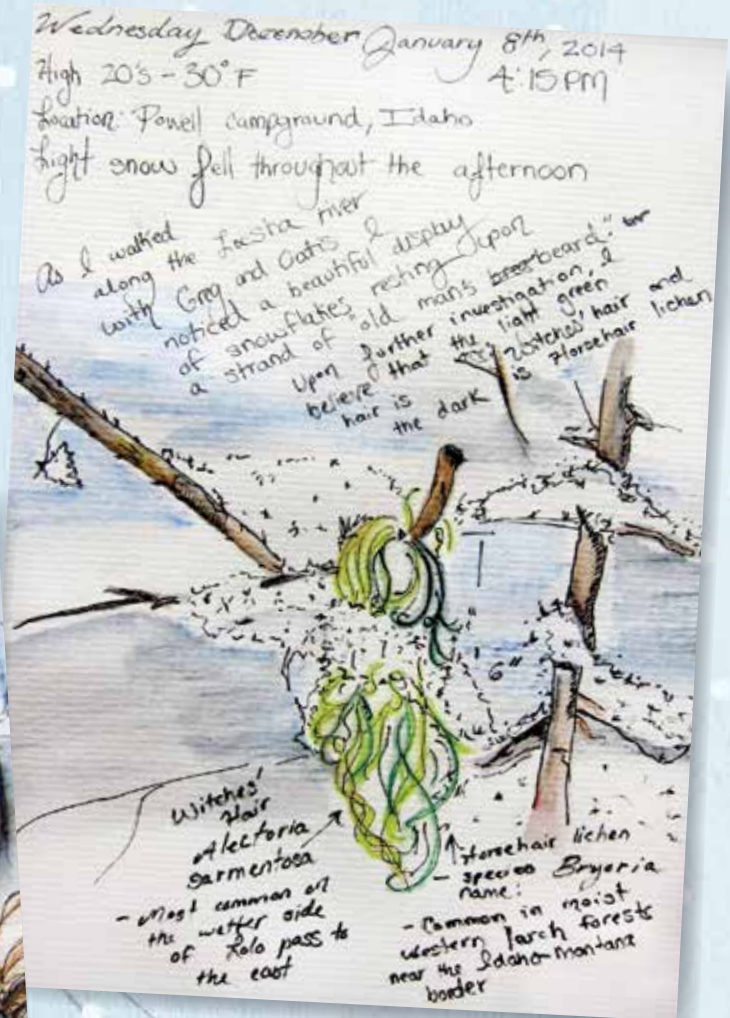 Wednesday December January 8th, 2014
High 20's - 30°F 4:15PM
Location: Powell campground, Idaho
Light snow fell throughout the afternoon
As I walked
along the Locsha river
with Greg and Oatis I
noticed a beautiful display
of snowflakes resting upon
a strand of "old man's beard."
Upon further investigation, I
believe that the light green
hair is Witches' hair and
the dark is Horsehair lichen
6"
Witches'
Hair
Alectoria
Sarmentosa
- Most common on
the wetter side
of Lolo pass to
the east
Horsehair lichen
- species Bryoria
name:
- Common in moist
western larch forests
near the Idaho-Montana
border